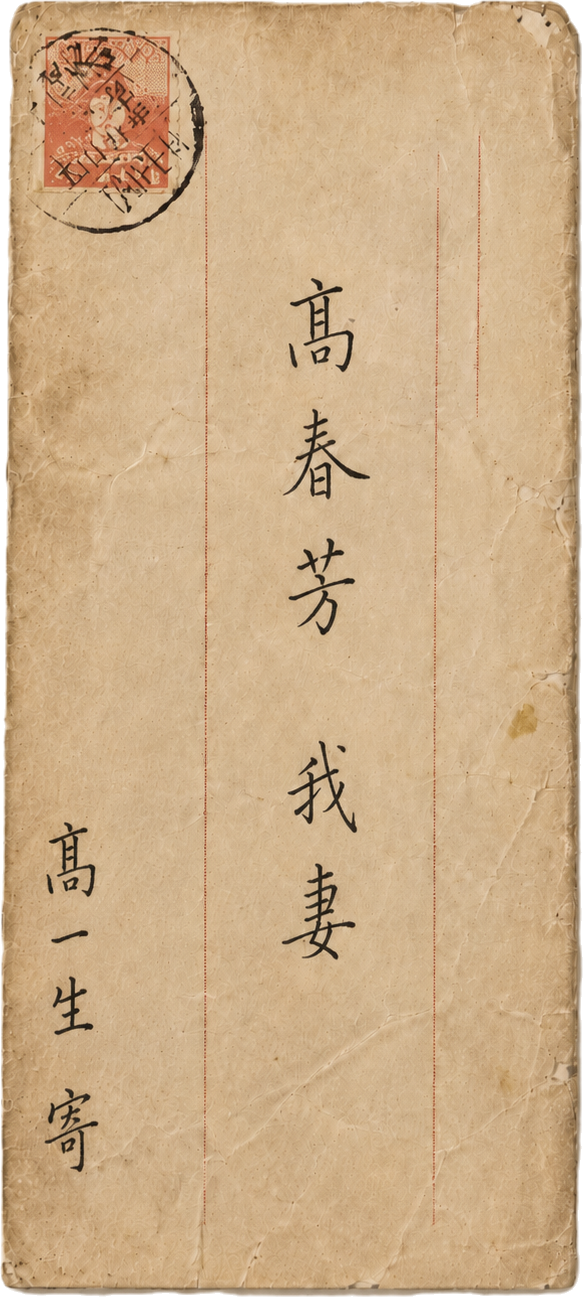 髙春芳 我妻
髙一生 寄